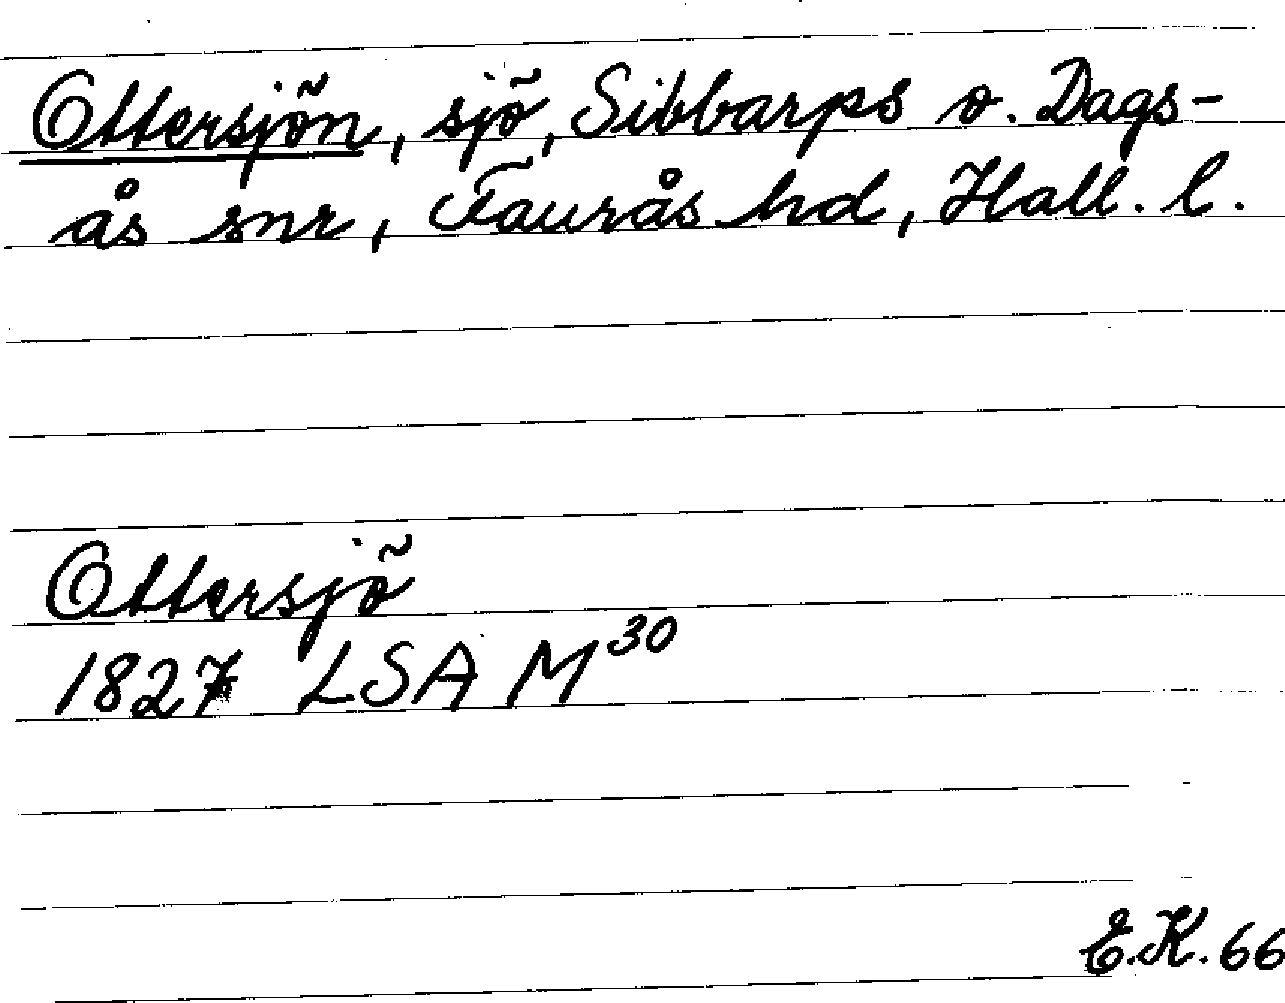 Ottersjön, sjö, Sibbarps o. Dags-
ås snr, Faurås hd, Hall. l.
Ottersjö
1827 LSA M³⁰
E.K. 66